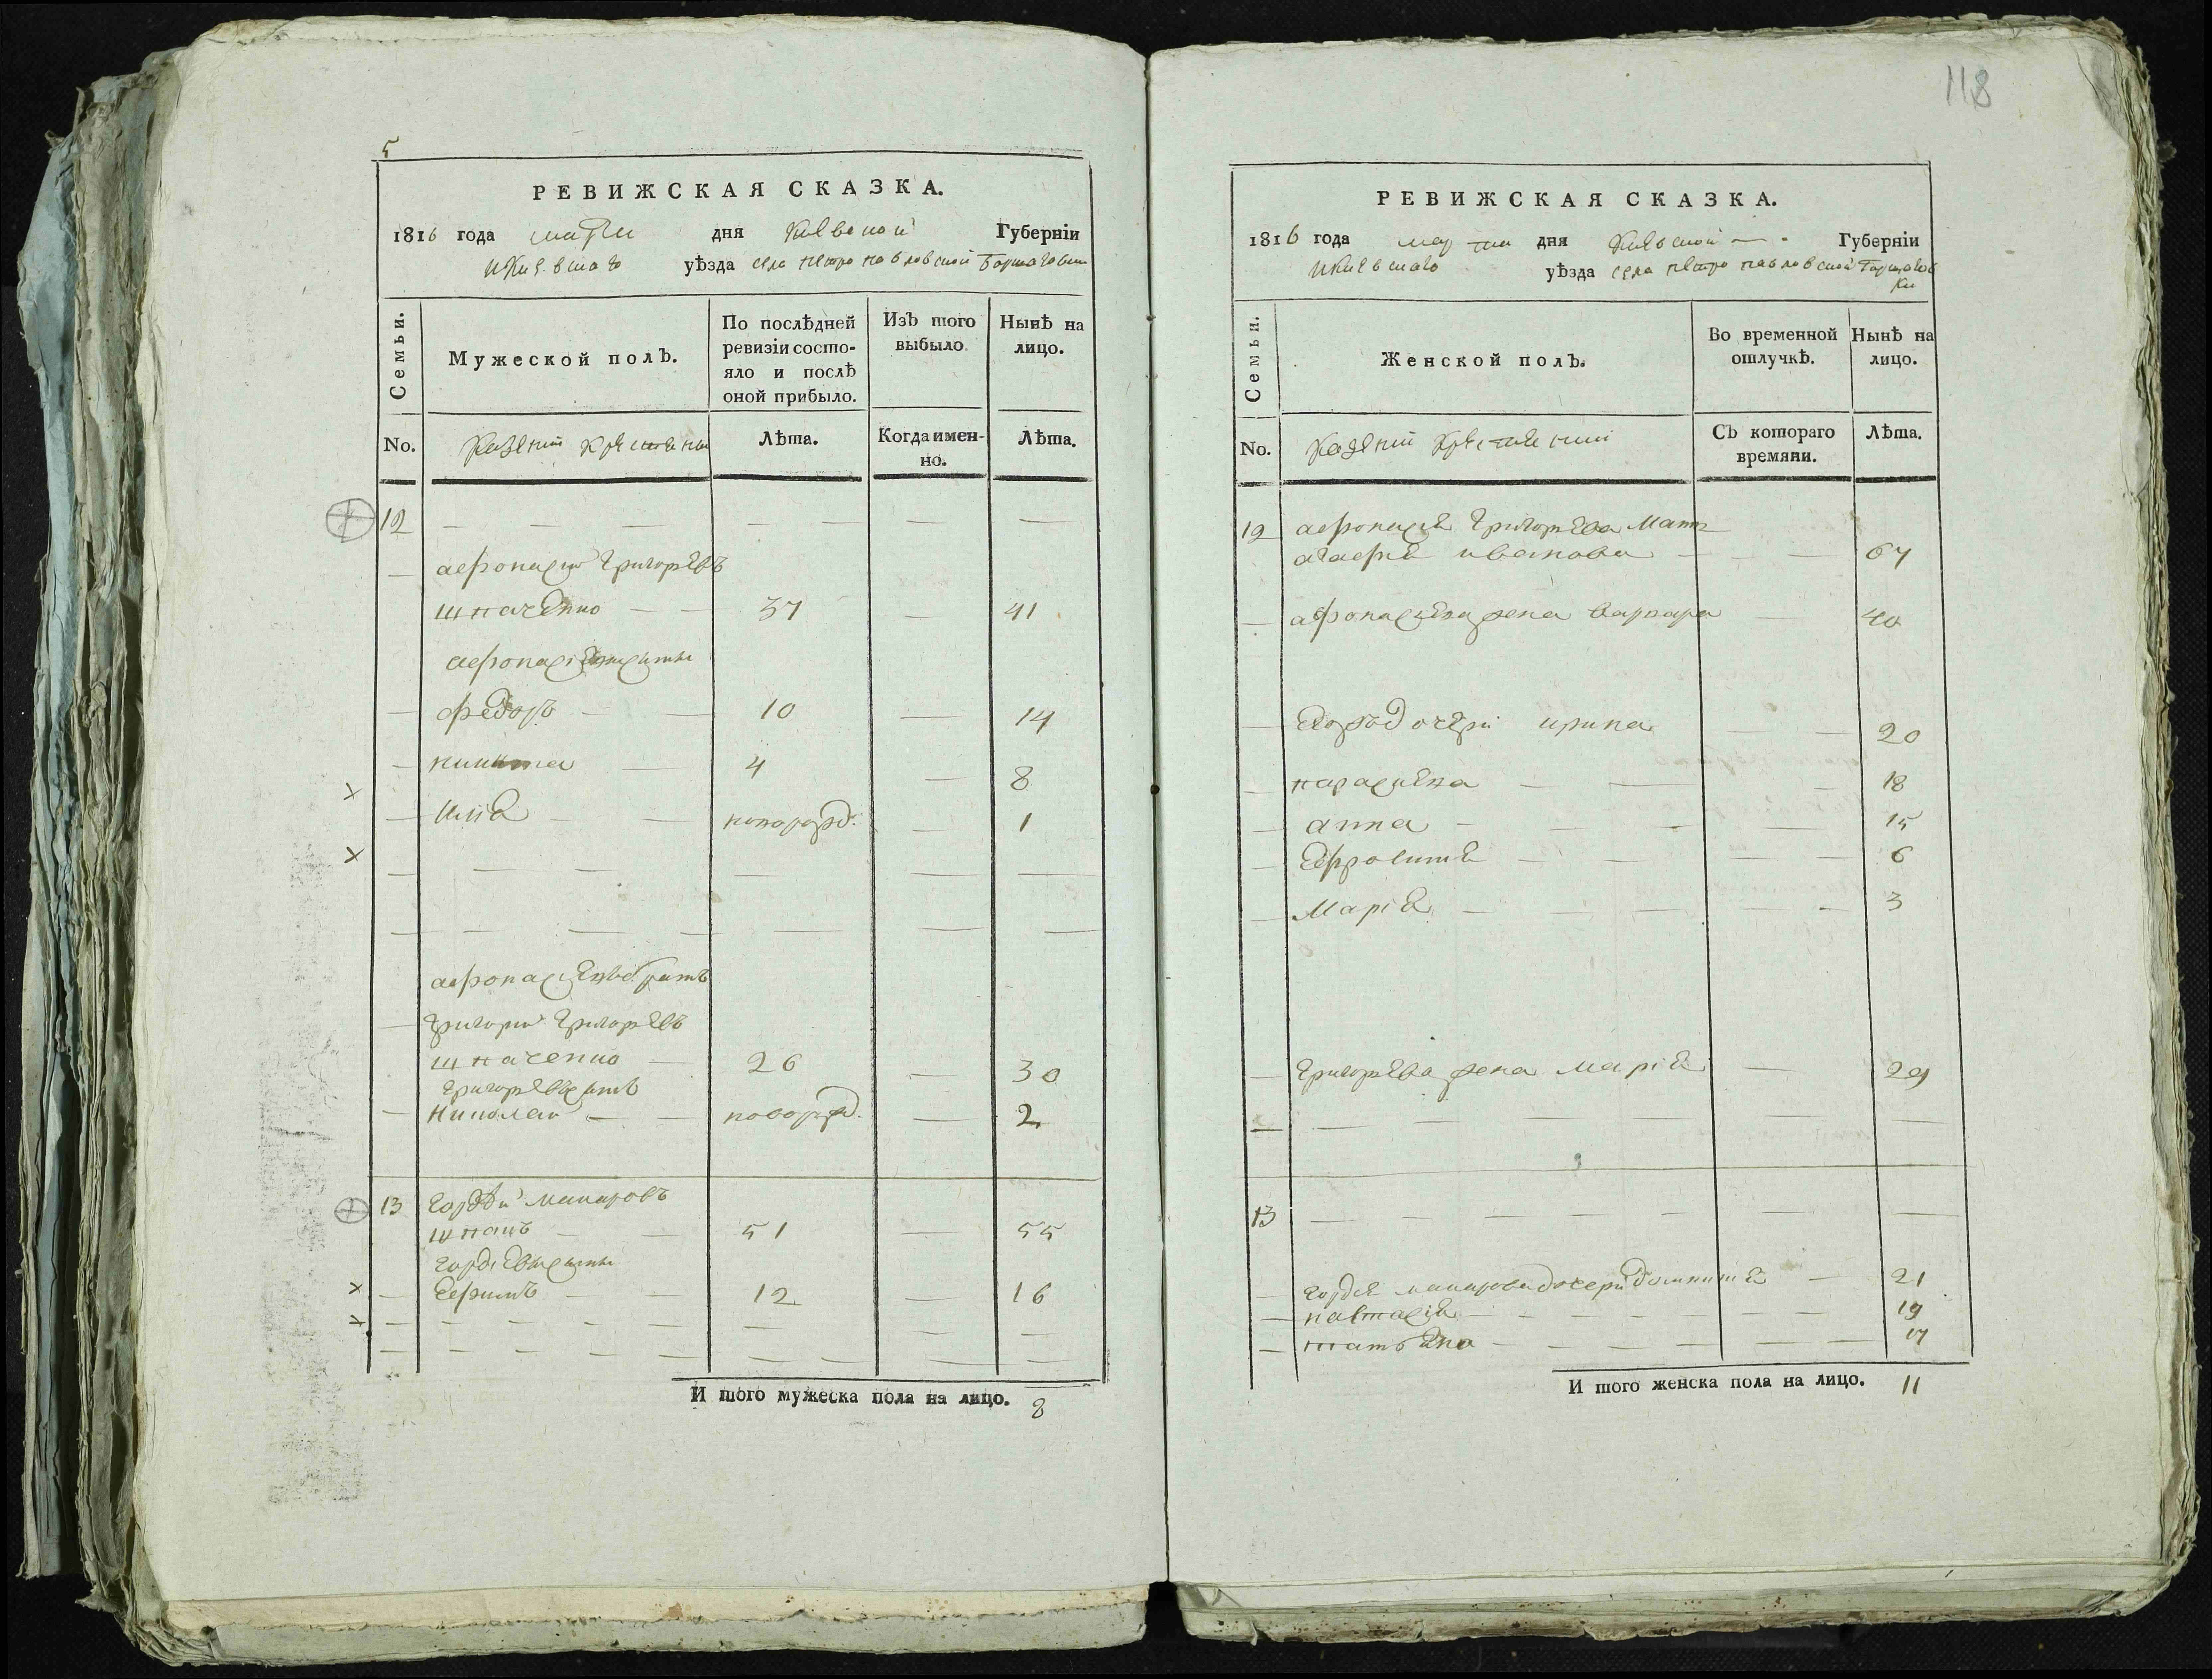 5
РЕВИЖСКАЯ СКАЗКА.
1816 года марта дня Киевской Губерніи
И Киевскаго уѣзда села Петропавловской Борщаговки
Семьи.
Мужеской полЪ.
По послѣдней ревизіи состояло и послѣ оной прибыло.
ИзЪ того выбыло.
Нынѣ на лицо.
No.
Казенни крестяни
Лѣта.
Когда именно.
Лѣта.
12
афонасий григоревъ
шпаченко 37 41
афонасиеви сини
федоръ 10 14
никита 4 8
илиа новорожд. 1
афонасиевъ братъ
григорий григоревъ
шпаченко 26 30
григоревъ синъ
николай новорожд. 2
13 гордѣй макаровъ
шпакъ 51 55
гордіеви сини
ефимъ 12 16
И того мужеска пола на лицо. 8
118
РЕВИЖСКАЯ СКАЗКА.
1816 года марта дня Киевской Губерніи
И Киевскаго уѣзда села Петропавловской Борщаговки
Семьи.
Женской полЪ.
Во временной отлучкѣ.
Нынѣ на лицо.
No.
Казенни крестяни
СЪ котораго времяни.
Лѣта.
12 афонасиа григорева мать
агафиа иванова 67
афонасиева жена варвара 40
дочери ирина 20
парасиева 18
анна 15
6
Маріа 3
григорева жена маріа 29
13
гордеа макарова дочери домникиа 21
настасіа 19
татьяна 17
И того женска пола на лицо. 11